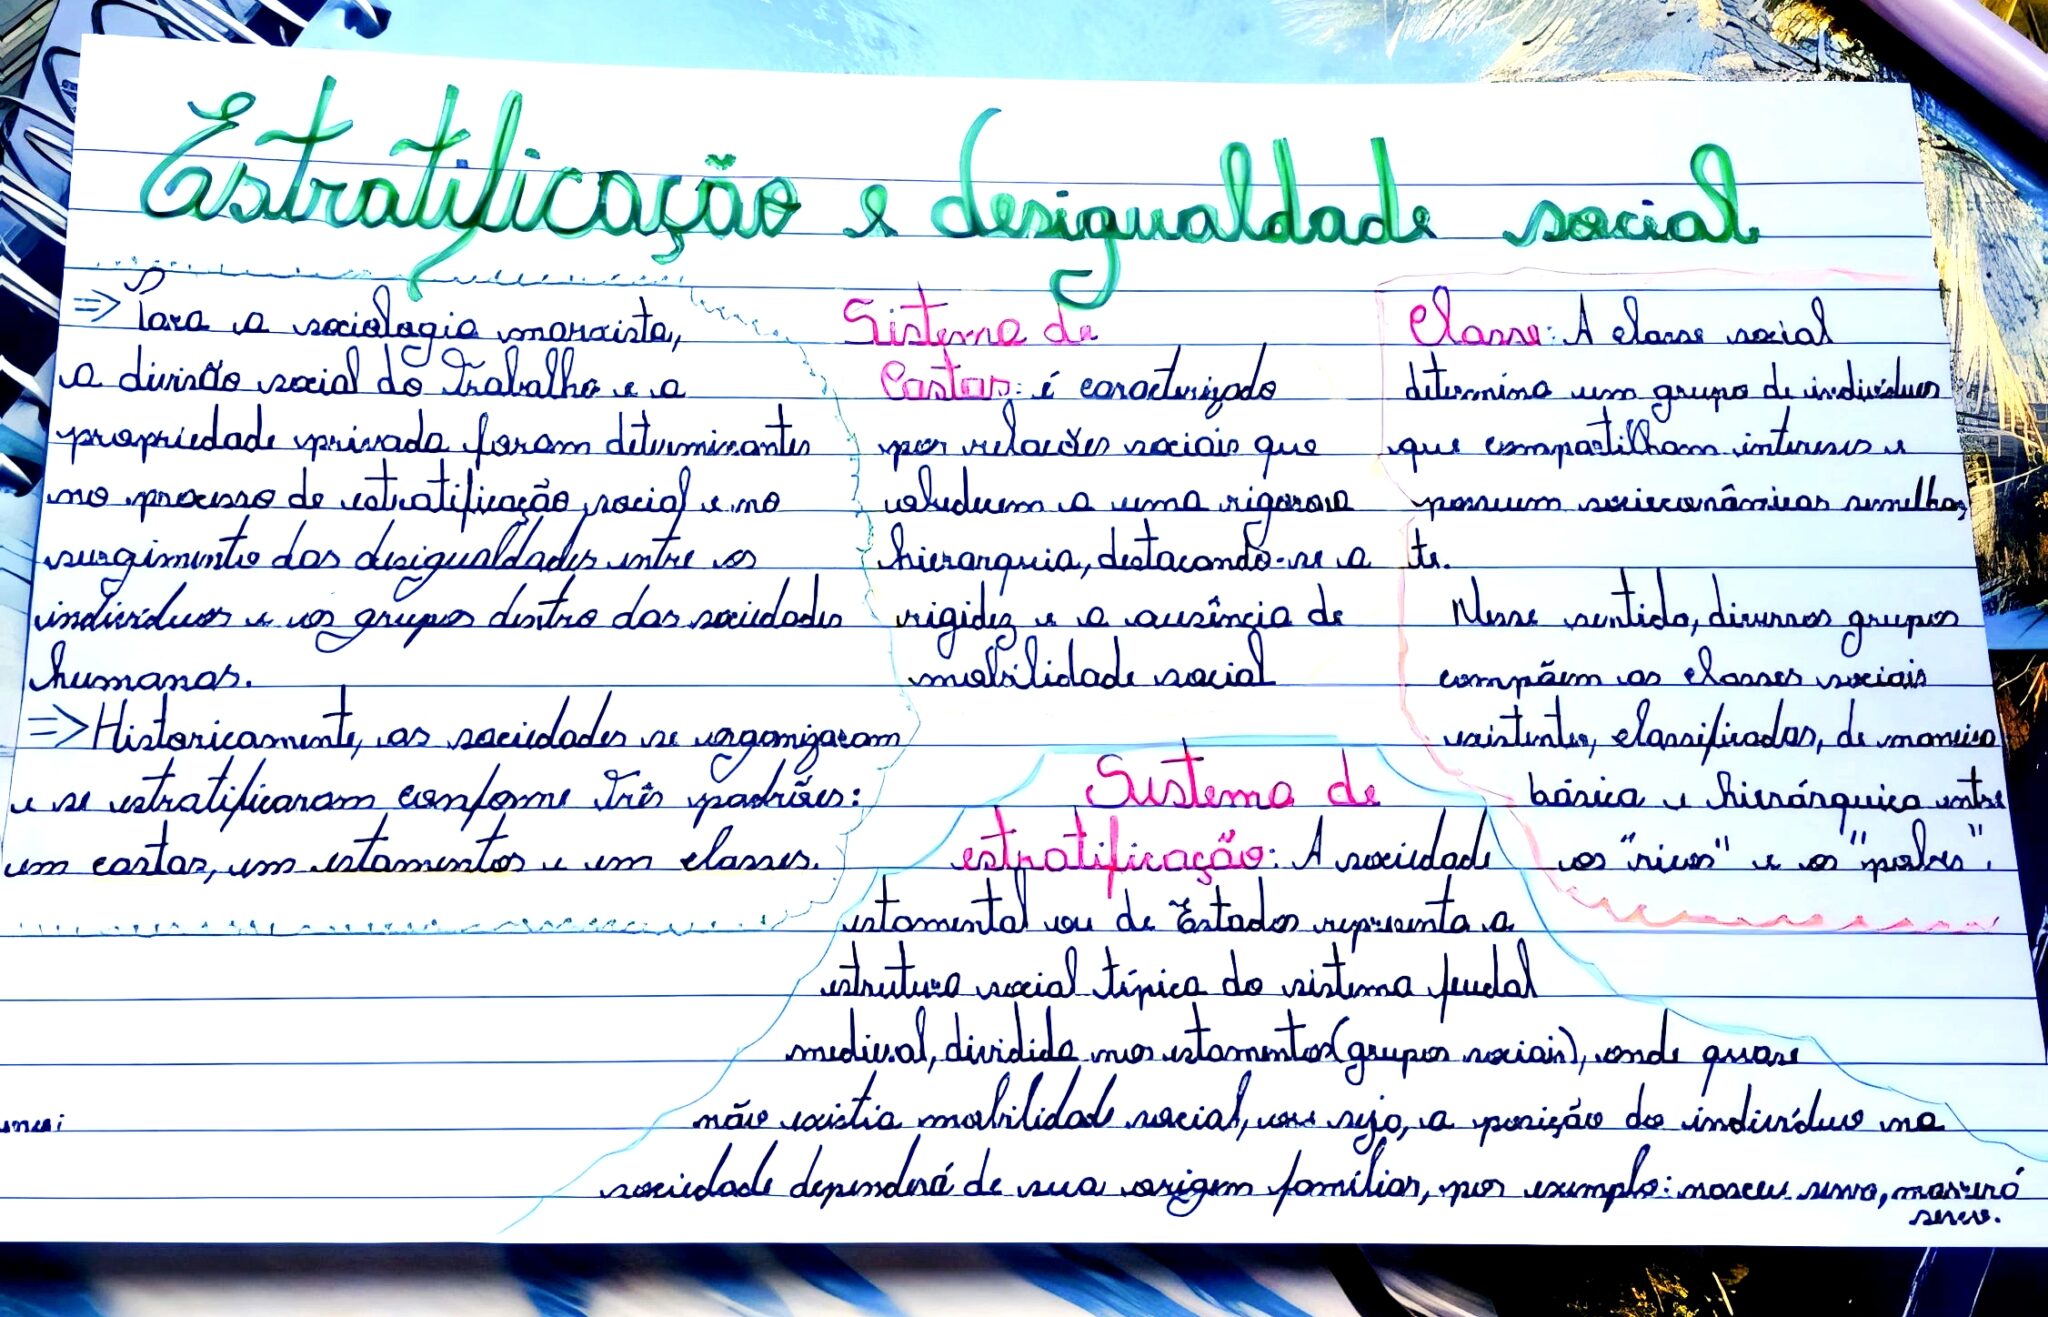 Estratificação e desigualdade social
=> Para a sociologia marxista,
a divisão social do Trabalho e a
propriedade privada foram determinantes
no processo de estratificação social e no
surgimento das desigualdades entre os
indivíduos e os grupos dentro das sociedades
humanas.
=> Historicamente, as sociedades se organizaram
e se estratificaram conforme Três padrões:
em castas, em estamentos e em classes.
Sistema de
Castas: é caracterizado
por relações sociais que
obedecem a uma rigorosa
hierarquia, destacando-se a
rigidez e a ausência de
mobilidade social
Classe: A classe social
determina um grupo de indivíduos
que compartilham interesses e
possuem socieconômicas semelhan
te.
Nesse sentido, diversos grupos
compõem as classes sociais
existentes, classificadas, de maneira
básica e hierárquica entre
os "ricos" e os "pobres".
Sistema de
estratificação: A sociedade
estamental ou de Estados representa a
estrutura social típica do sistema feudal
medieval, dividida nos estamentos (grupos sociais), onde quase
não existia mobilidade social, ou seja, a posição do indivíduo na
sociedade dependerá de sua origem familiar, por exemplo: nasceu servo, morrerá
servo.